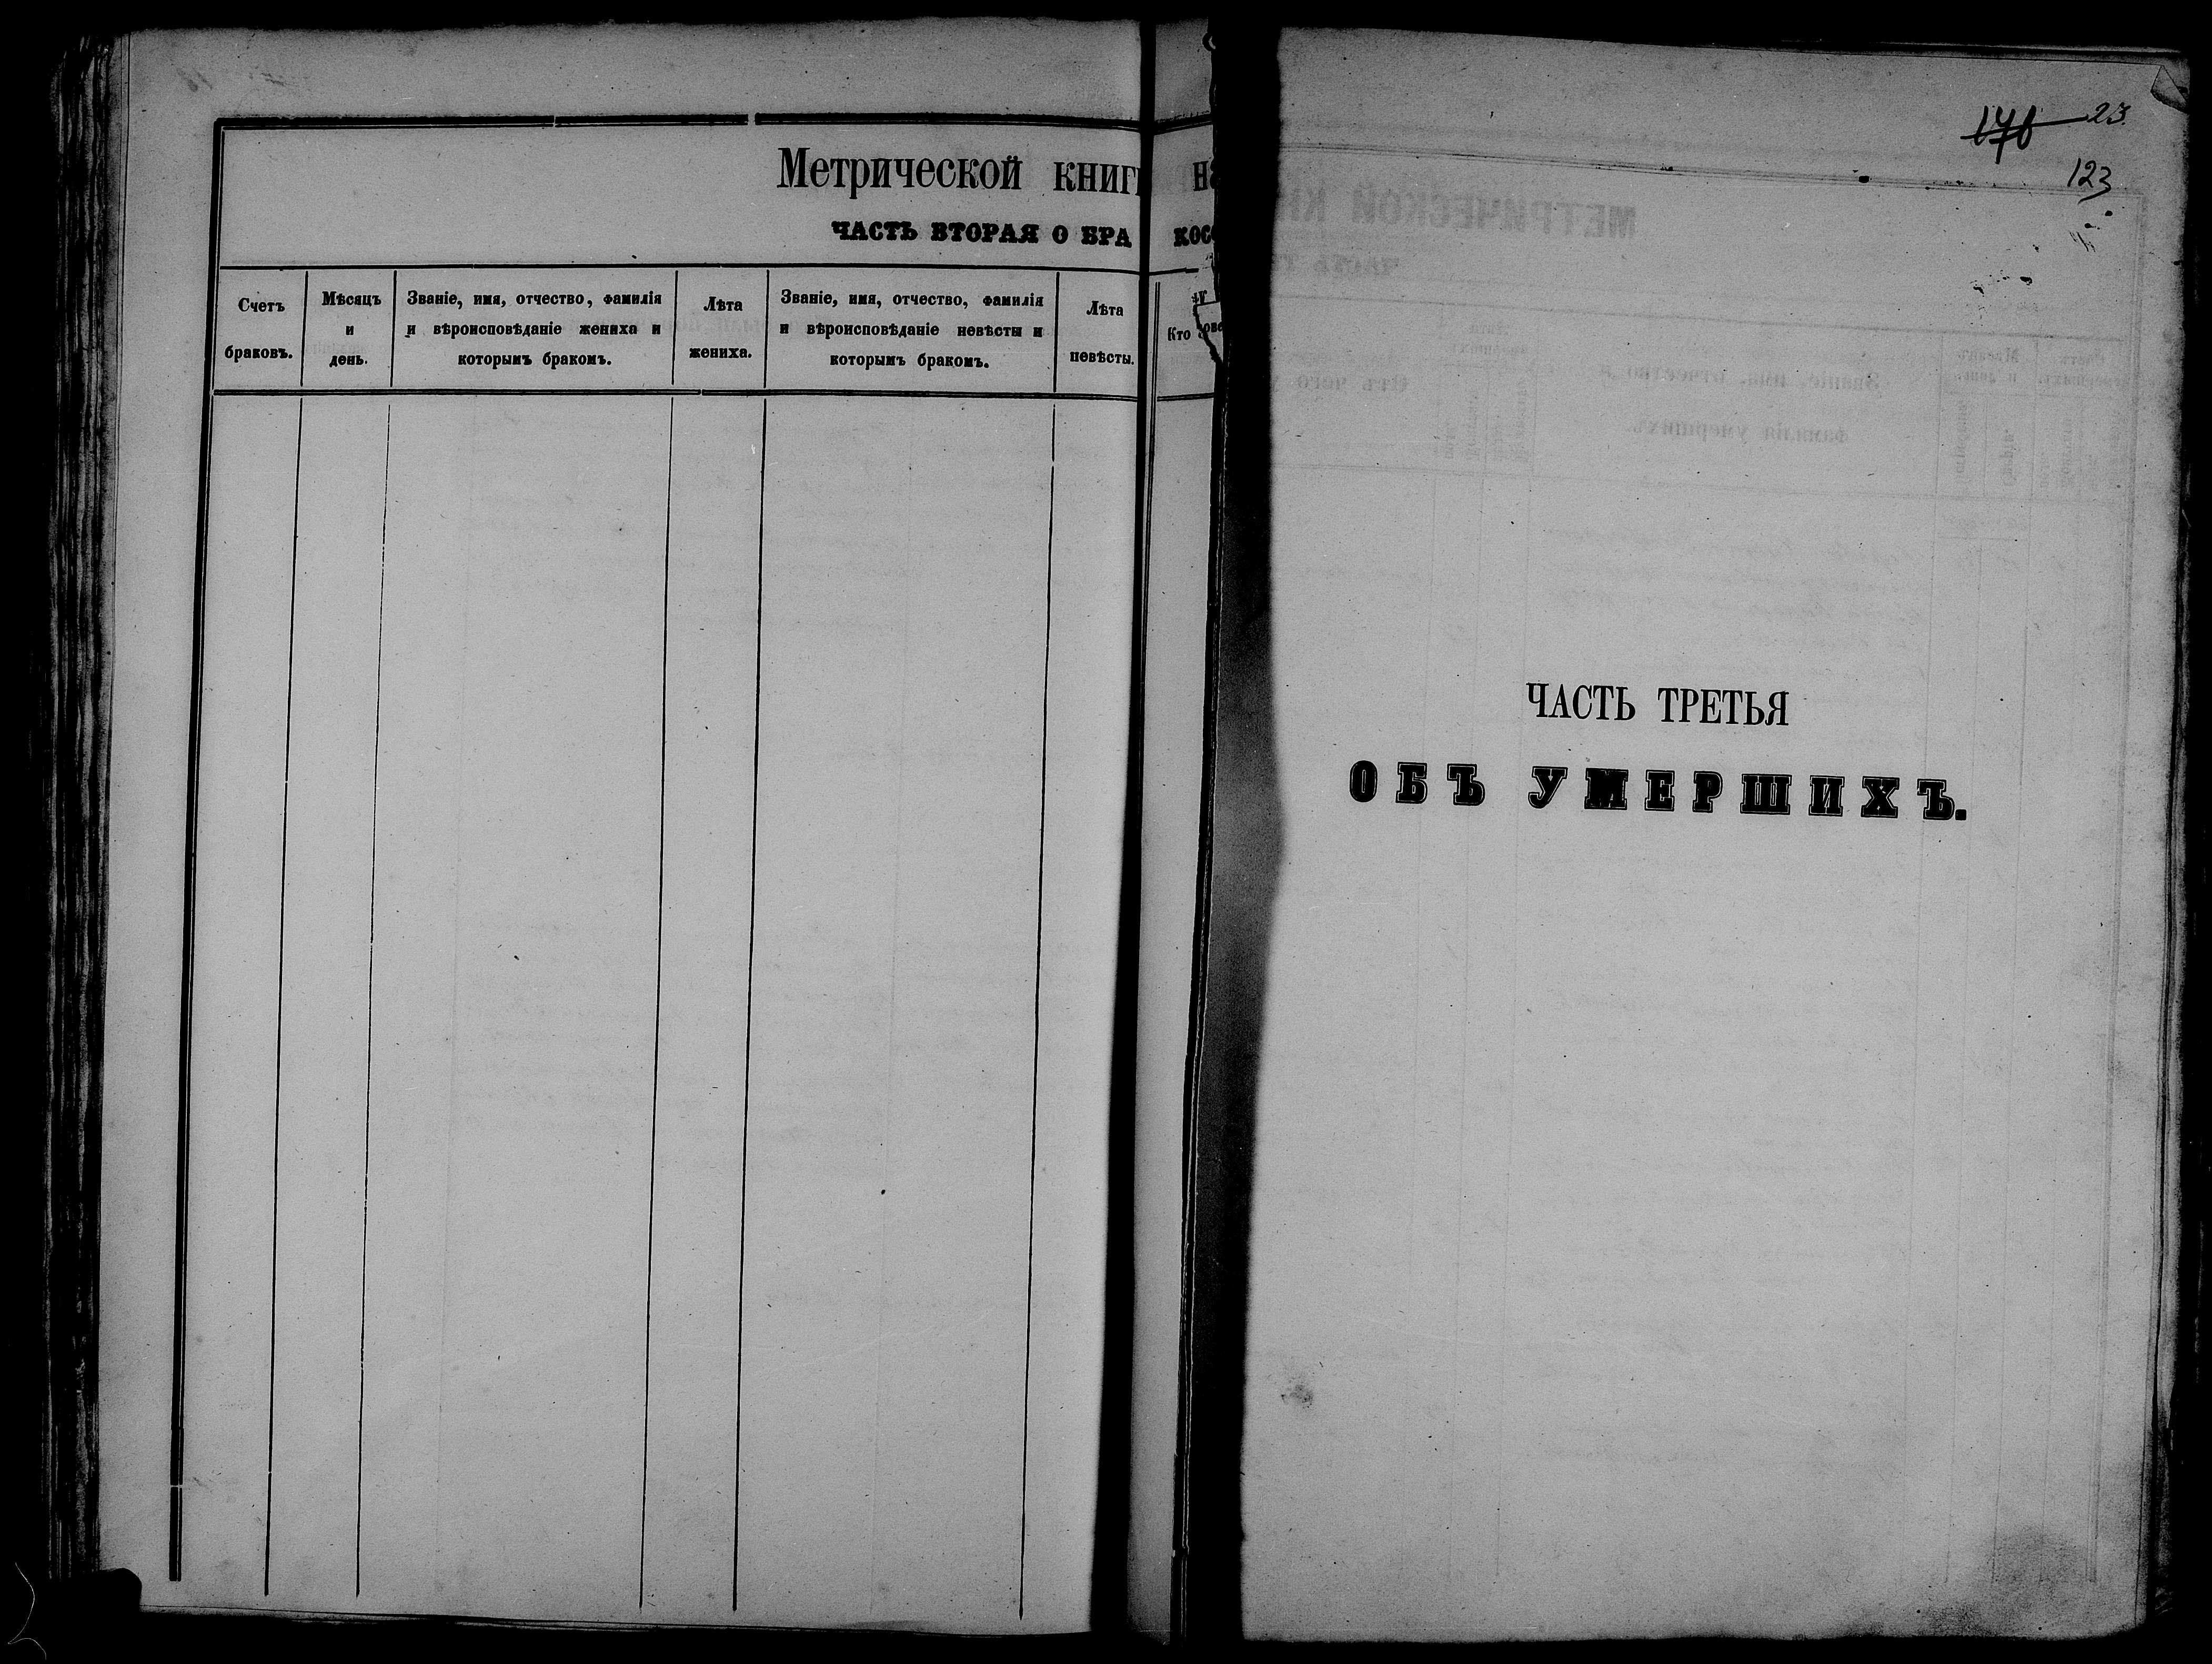 Метрической книг на
ЧАСТЬ ВТОРАЯ О БРА КОСО
Счетъ
браковъ.
Мѣсяцъ
и
день.
Званіе, имя, отчество, фамилія
и вѣроисповѣданіе жениха и
которымъ бракомъ.
Лѣта
жениха.
Званіе, имя, отчество, фамилія
и вѣроисповѣданіе невѣсты и
которымъ бракомъ.
Лѣта
невѣсты.
Кто
23.
123
ЧАСТЬ ТРЕТЬЯ
ОБЪ УМЕРШИХЪ.